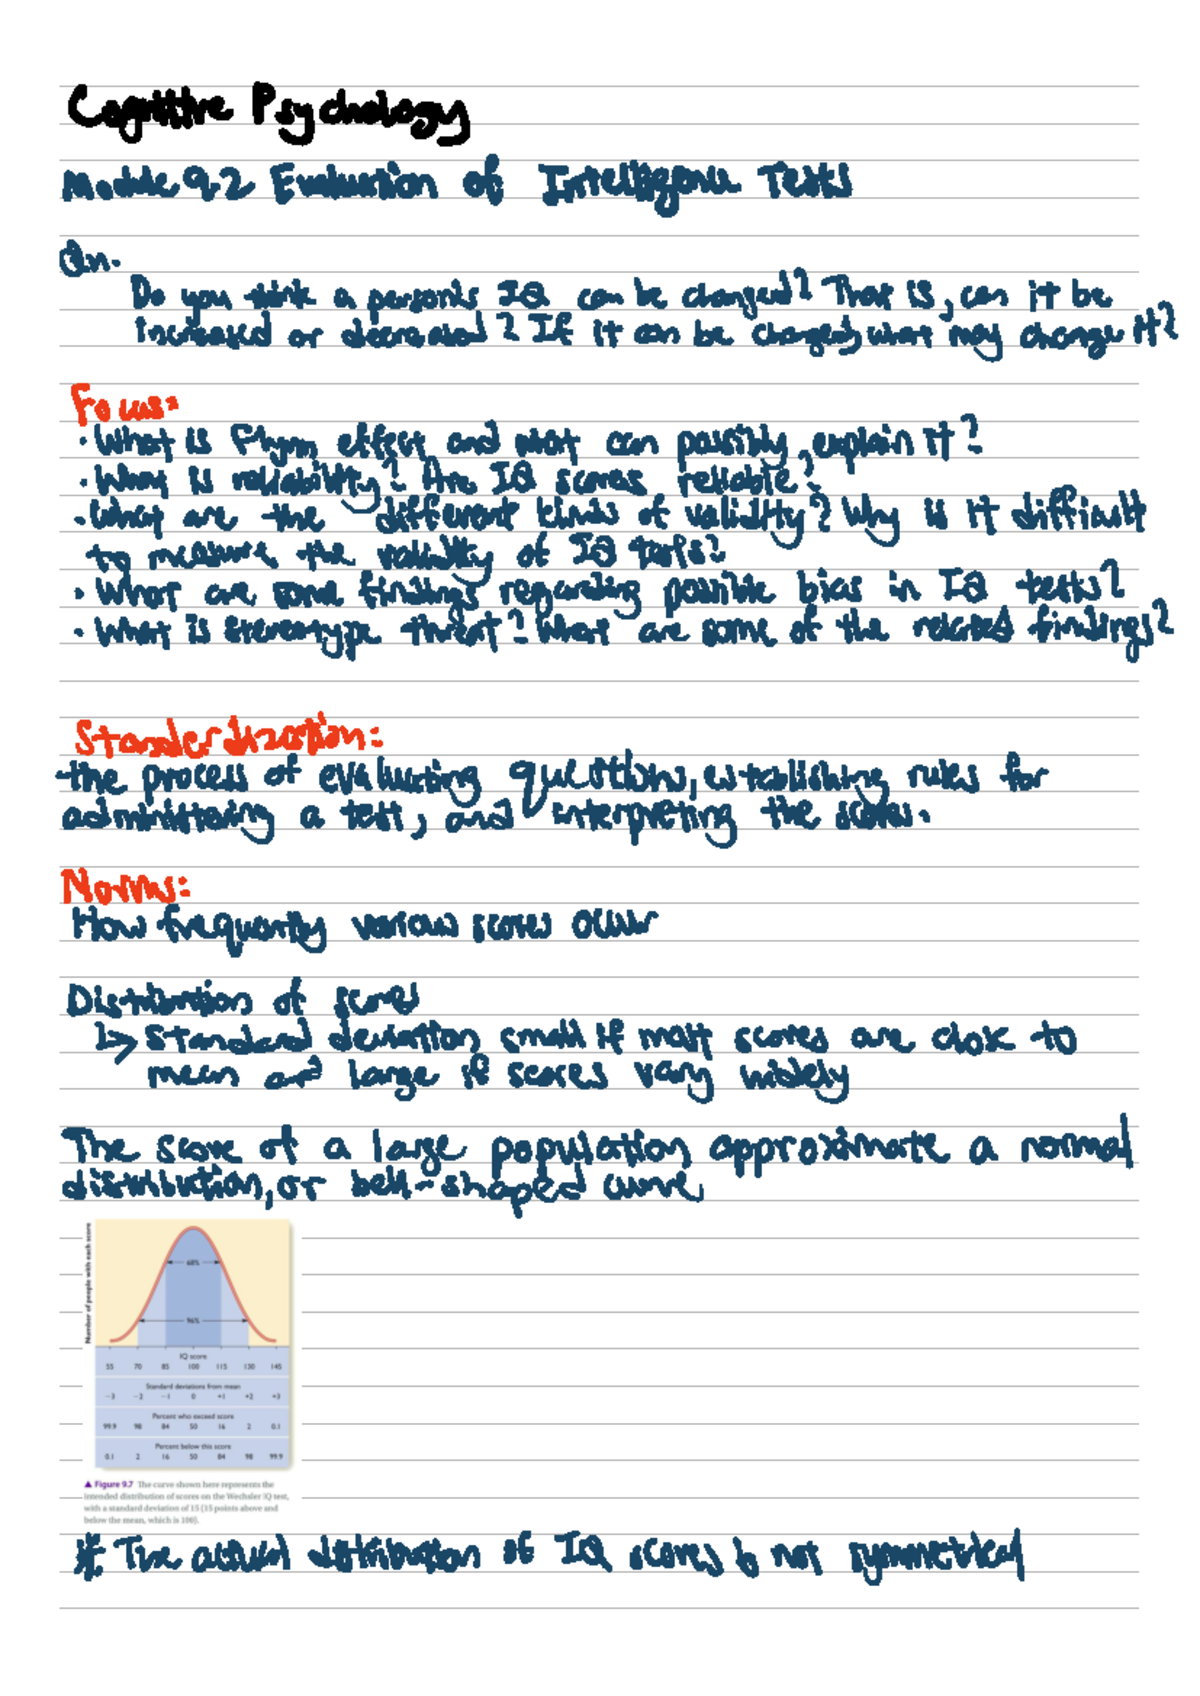 Cognitive Psychology
Module 9.2 Evaluation of Intelligence Tests
Qn.
Do you think a person's IQ can be changed? That is, can it be
increased or decreased? If it can be changed, what may change it?
Focus:
• What is Flynn effect and what can possibly explain it?
• What is reliability? Are IQ scores reliable?
• What are the different kinds of validity? Why is it difficult
to measure the validity of IQ tests?
• What are some findings regarding possible bias in IQ tests?
• What is stereotype threat? What are some of the related findings?
Standardization:
the process of evaluating questions, establishing rules for
administering a test, and interpreting the scores.
Norms:
How frequently various scores occur
Distribution of scores
↳ Standard deviation small if most scores are close to
mean and large if scores vary widely
The score of a large population approximate a normal
distribution, or bell-shaped curve
Number of people with each score
68%
96%
IQ score
55 70 85 100 115 130 145
Standard deviations from mean
−3 −2 −1 0 +1 +2 +3
Percent who exceed score
99.9 98 84 50 16 2 0.1
Percent below this score
0.1 2 16 50 84 98 99.9
▲ Figure 9.7 The curve shown here represents the
intended distribution of scores on the Wechsler IQ test,
with a standard deviation of 15 (15 points above and
below the mean, which is 100).
* The actual distribution of IQ scores is not symmetrical